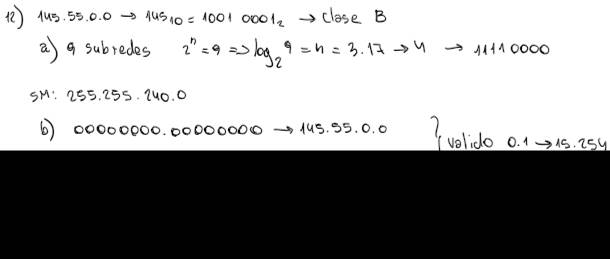 12) 145.55.0.0 → 145₁₀ = 1001 0001₂ → clase B
a) 9 subredes 2ⁿ = 9 => log₂ 9 = n = 3.17 → 4 → 11110000
SM: 255.255.240.0
b) 00000000.00000000 → 145.55.0.0 } valido 0.1 → 15.254